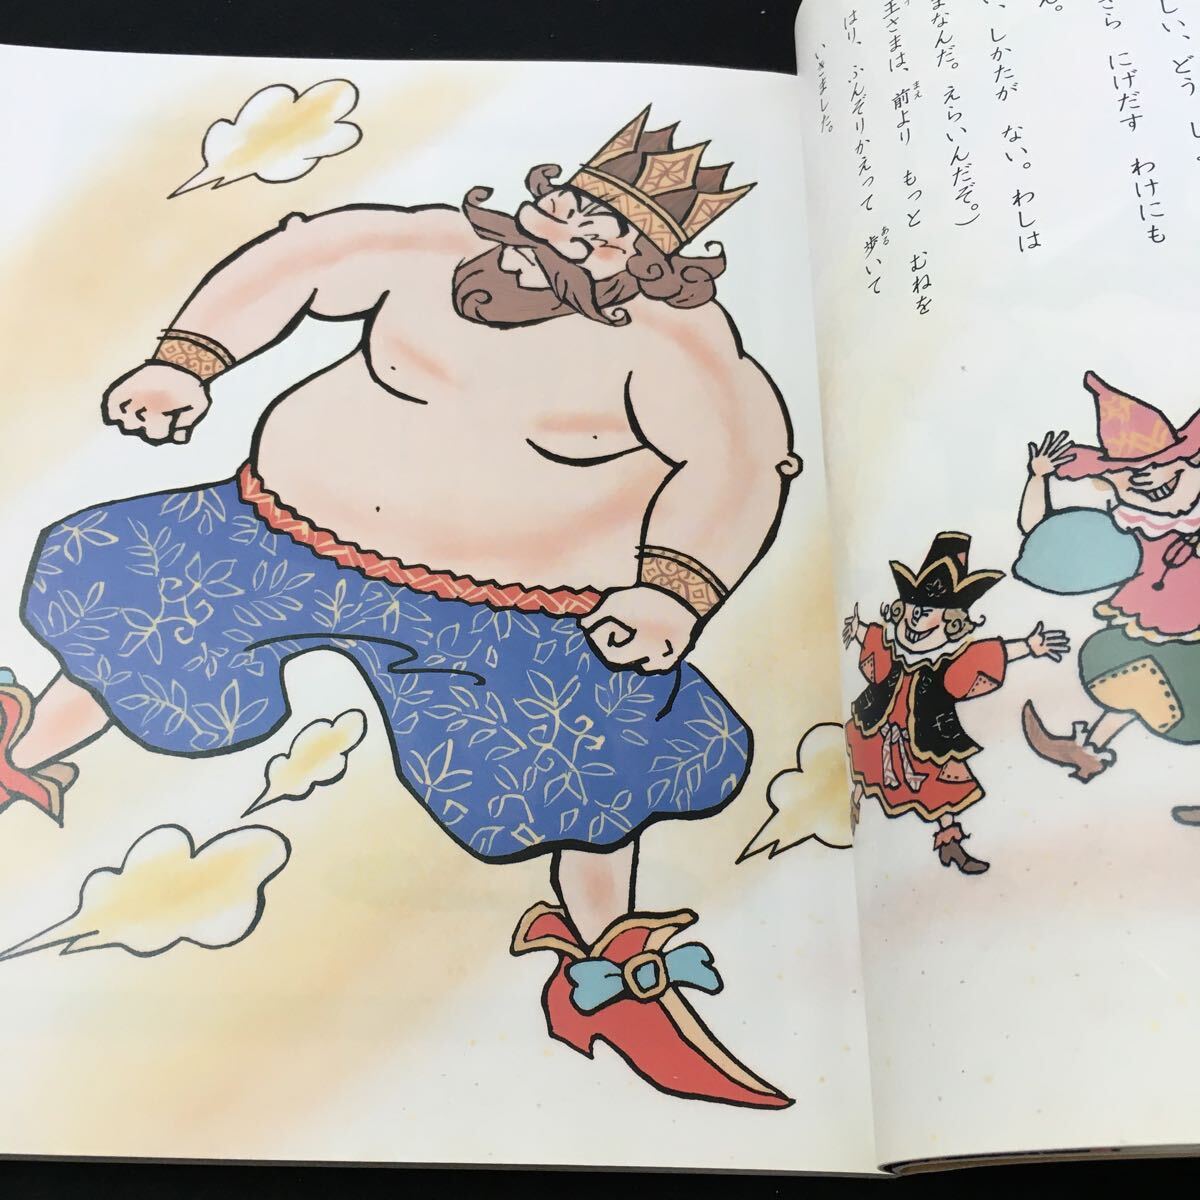 しい、どう し
さら にげだす わけにも
ん。
い、しかたが ない。わしは
まなんだ。えらいんだぞ。)
王さまは、前より もっと むねを
まえ
はり、ふんぞりかえって 歩いて
ある
いきました。